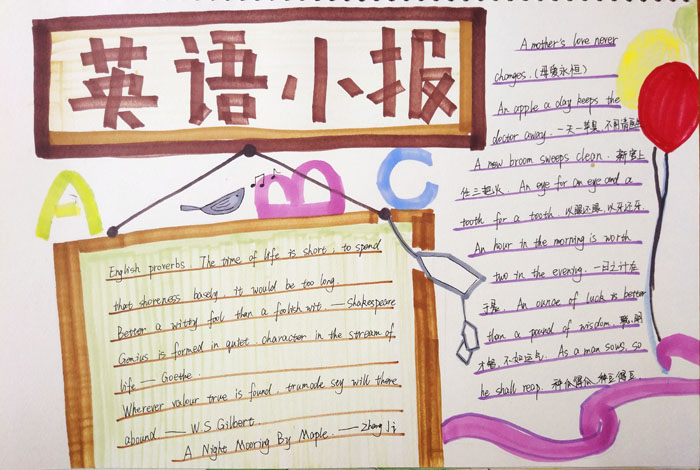 英语小报
A B C
English proverbs. The time of life is short; to spend
that shoreness basely, it would be too long.
Better a witty fool than a foolish wit. — Shakespeare
Genius is formed in quiet, character in the stream of
life — Goethe.
Wherever valour true is found, true mode sty will there
abound — W.S Gilbert.
A Night Mooring By Maple. — Zhang Ji
A mother's love never
changes. (母爱永恒)
An apple a day keeps the
doctor away. 一天一苹果, 不用请医生
A new broom sweeps clean. 新官上
任三把火. An eye for an eye and a
tooth for a tooth 以眼还眼 以牙还牙.
An hour in the morning is worth
two in the evening. 一日之计在
于晨. An ounce of luck is better
than a pound of wisdom.
才智, 不如运气. As a man sows, so
he shall reap. 种瓜得瓜, 种豆得豆.